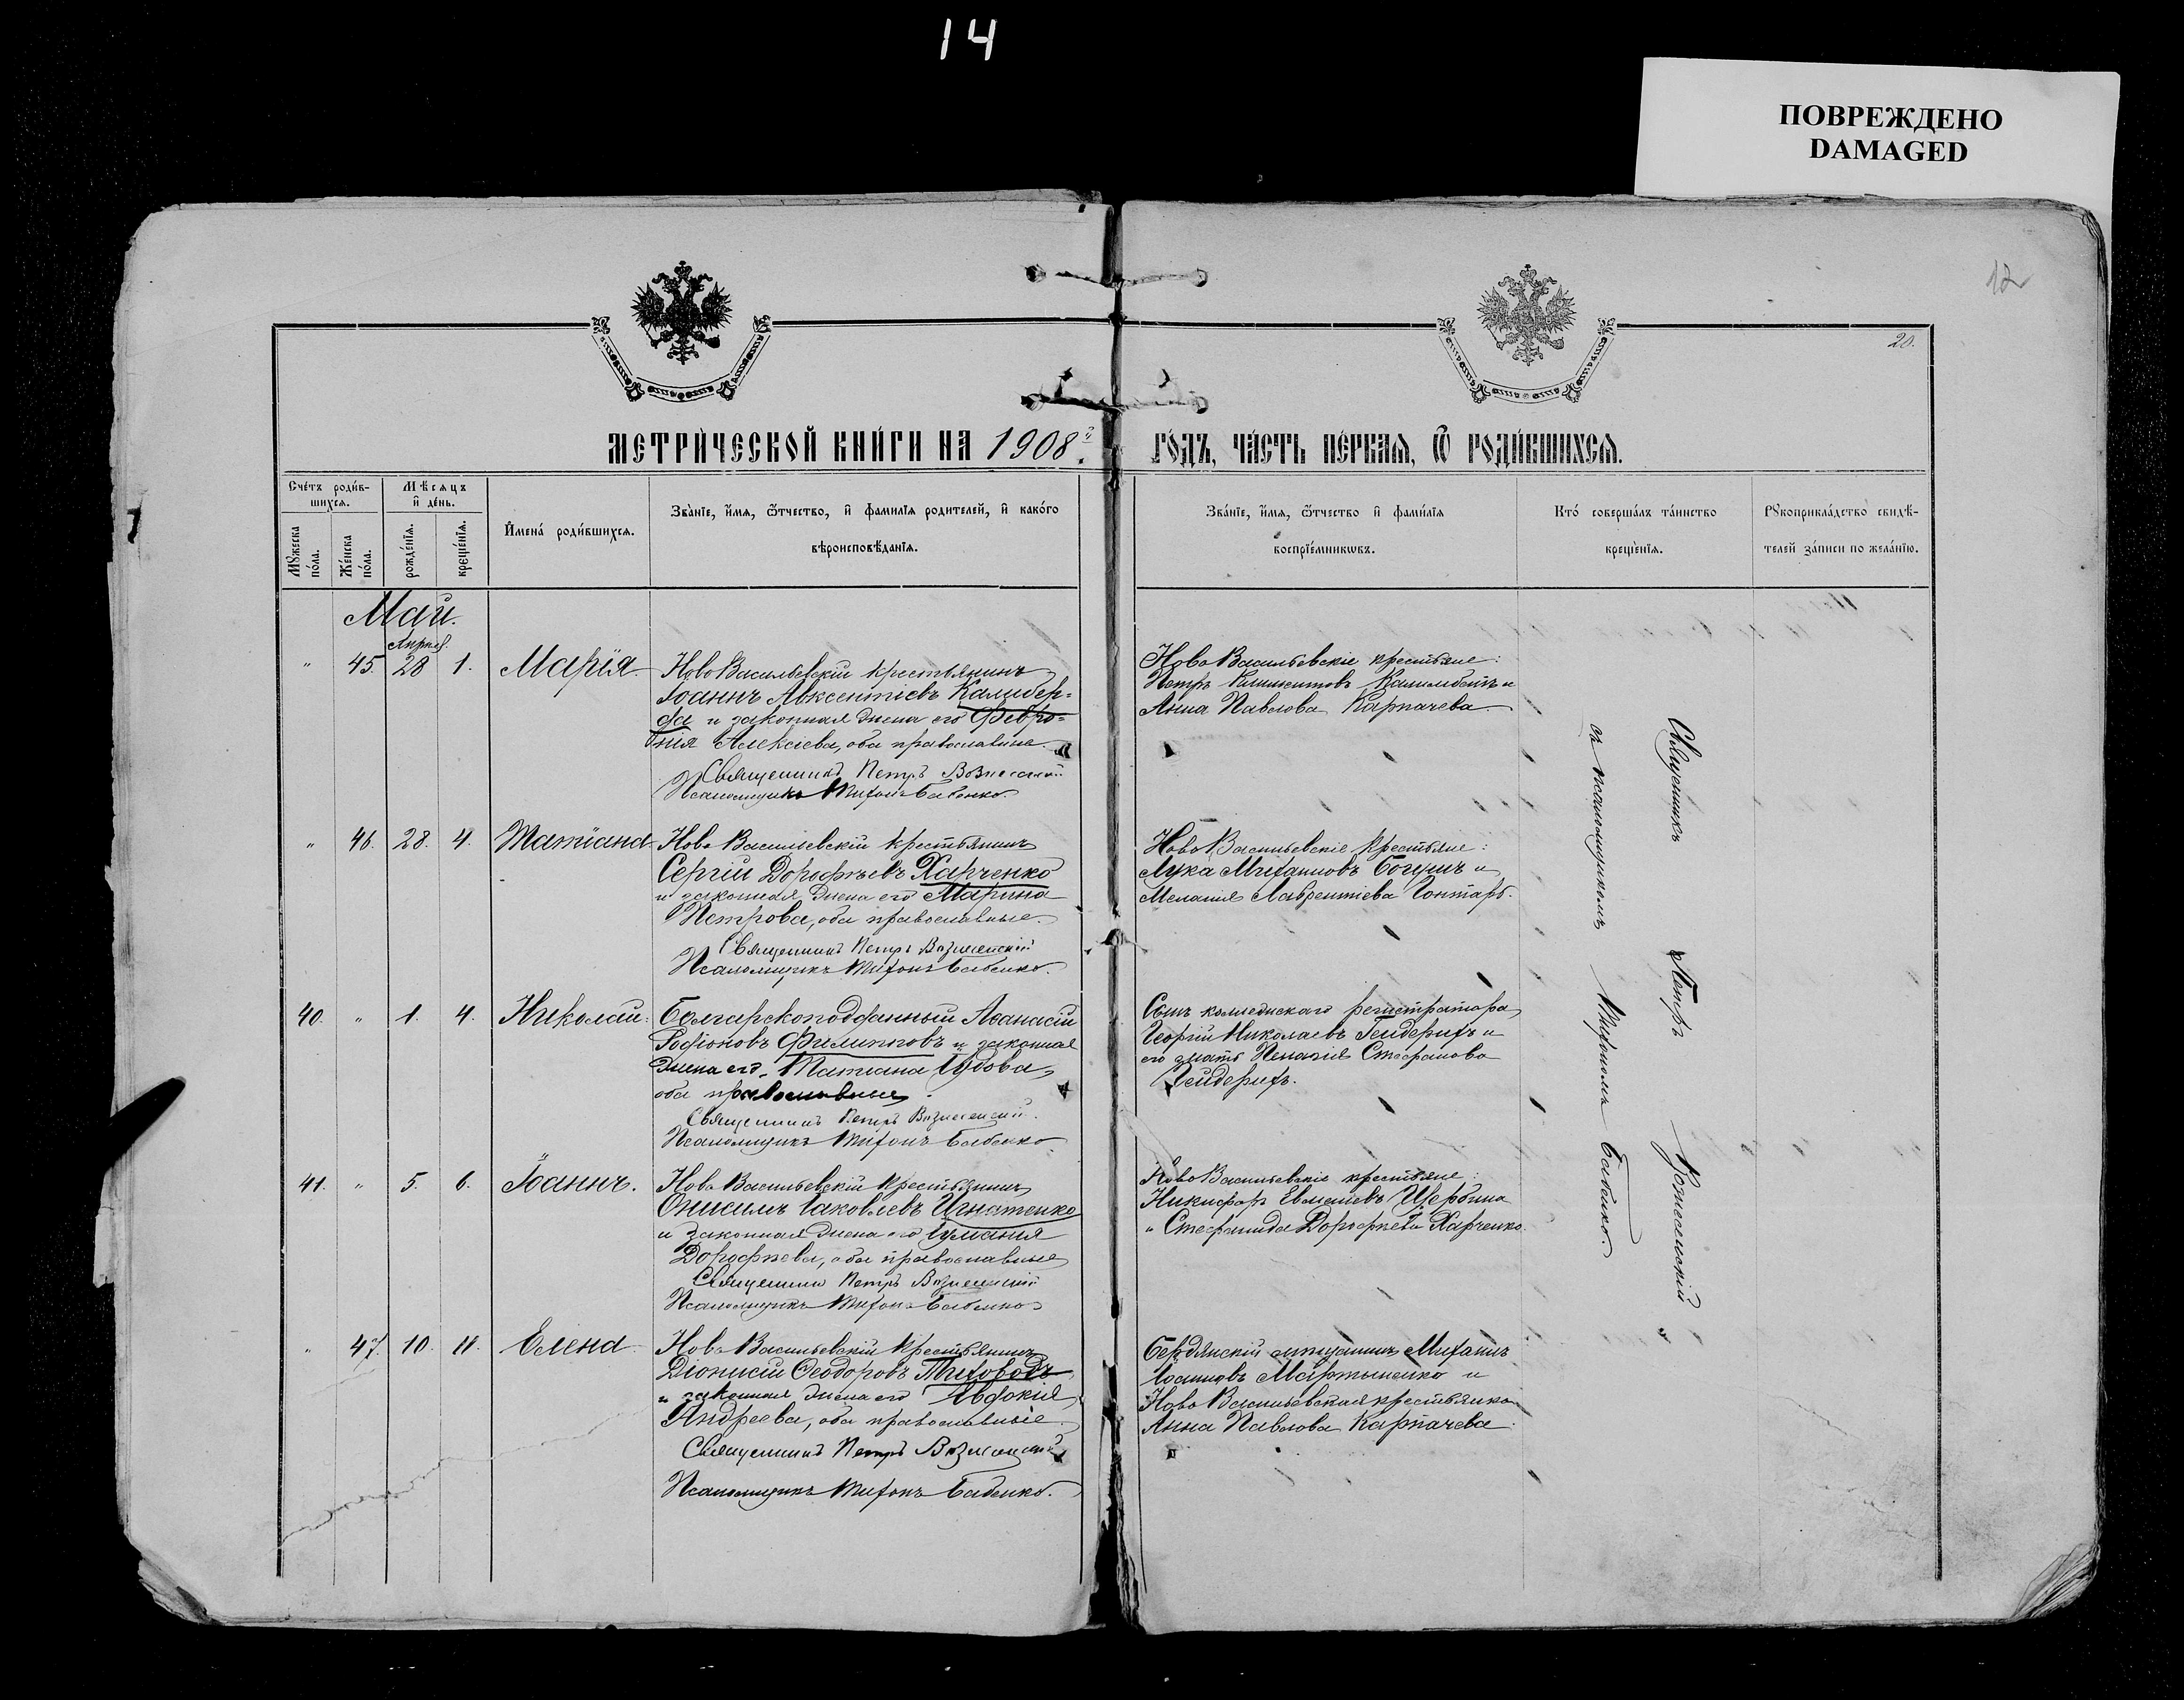 14
ПОВРЕЖДЕНО
DAMAGED
12
20.
МЕТРИЧЕСКОЙ КНИГИ НА 1908й ГОДЪ, ЧАСТЬ ПЕРВАЯ, Ѿ РОДИВШИХСЯ.
Счетъ родив-
шихся.
Мѣсяцъ
и день.
Мужеска
пола.
Женска
пола.
рожденія.
крещенія.
Имена родившихся.
Званіе, имя, ѿтчество, и фамилія родителей, и какого
вѣроисповѣданія.
Званіе, имя, ѿтчество и фамилія
воспріемникѡвъ.
Кто совершалъ таинство
крещенія.
Рукоприкладство свидѣ-
телей записи по желанію.
Май.
Апрѣл.
" 45. 28 1. Марія.
НовоВасильевскій крестьянинъ
Іоаннъ Авксентіевъ Калидер-
да и законная жена его Февро-
нія Алексіева, оба православные.
Священникъ Петръ Вознесенскій
Псаломщикъ Митрофанъ Бабенко.
НовоВасильевскіе крестьяне:
Петръ и
Анна Павлова Карпачева
" 46. 28. 4. Татіана
Ново Васильевскій крестьянинъ
Сергій Дорофѣевъ Харченко
и законная жена его Марина
Петрова, оба православные.
Священникъ Петръ Вознесенскій
Псаломщикъ Бабенко.
НовоВасильевскіе крестьяне:
Лука и
Меланія Лаврентіева Гонтарь.
40. " 1. 4. Николай:
Болгарскоподданный Аѳанасій
Родіоновъ Филипповъ и законная
жена его Татіана
оба православные.
Священникъ Петръ Вознесенскій.
Псаломщикъ Бабенко
Сынъ коллежскаго регистратора
Георгій Николаевъ Гейдерихъ и
его мать Пелагія Стефанова
Гейдерихъ.
41. " 5. 6. Іоаннъ.
Ново Васильевскій крестьянинъ
Онисимъ Іаковлевъ Игнатенко
и законная жена его Іуліанія
Дорофѣева, оба православные
Священникъ Петръ Вознесенскій
Псаломщикъ Бабенко
НовоВасильевскіе крестьяне:
Никифоръ Щербина
и Стефанида Дорофѣева Харченко.
" 47. 10. 11. Елена
Ново Васильевскій крестьянинъ
Діонисій Ѳеодоровъ Тиховодъ
и законная жена его Авдокія
Андреева, оба православные.
Священникъ Петръ Вознесенскій
Псаломщикъ Бабенко.
Бердянскій мѣщанинъ Михаилъ
Іоанновъ Мартыненко и
Ново Васильевская крестьянка
Анна Павлова Карпачева.
Священникъ Петръ Вознесенскій
съ псаломщикомъ Бабенко.